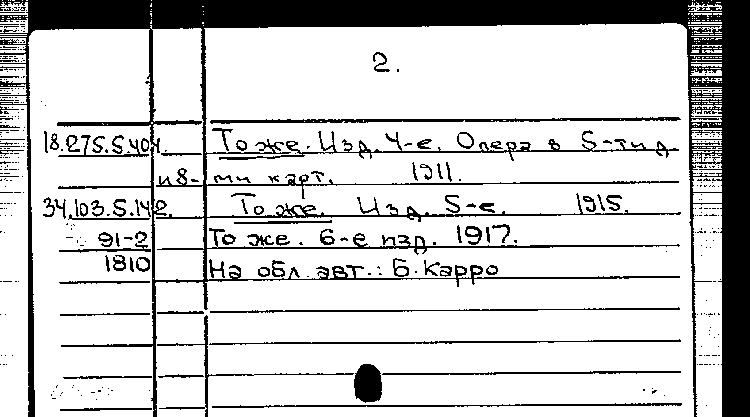 2.
18.275.5.404. То же. Изд. 4-е. Опера в 5-ти д
и 8-ми карт. 1911.
34.103.5.142. То же. Изд. 5-е. 1915.
91-2 То же. 6-е изд. 1917.
1810 На обл. авт.: Б. Карро